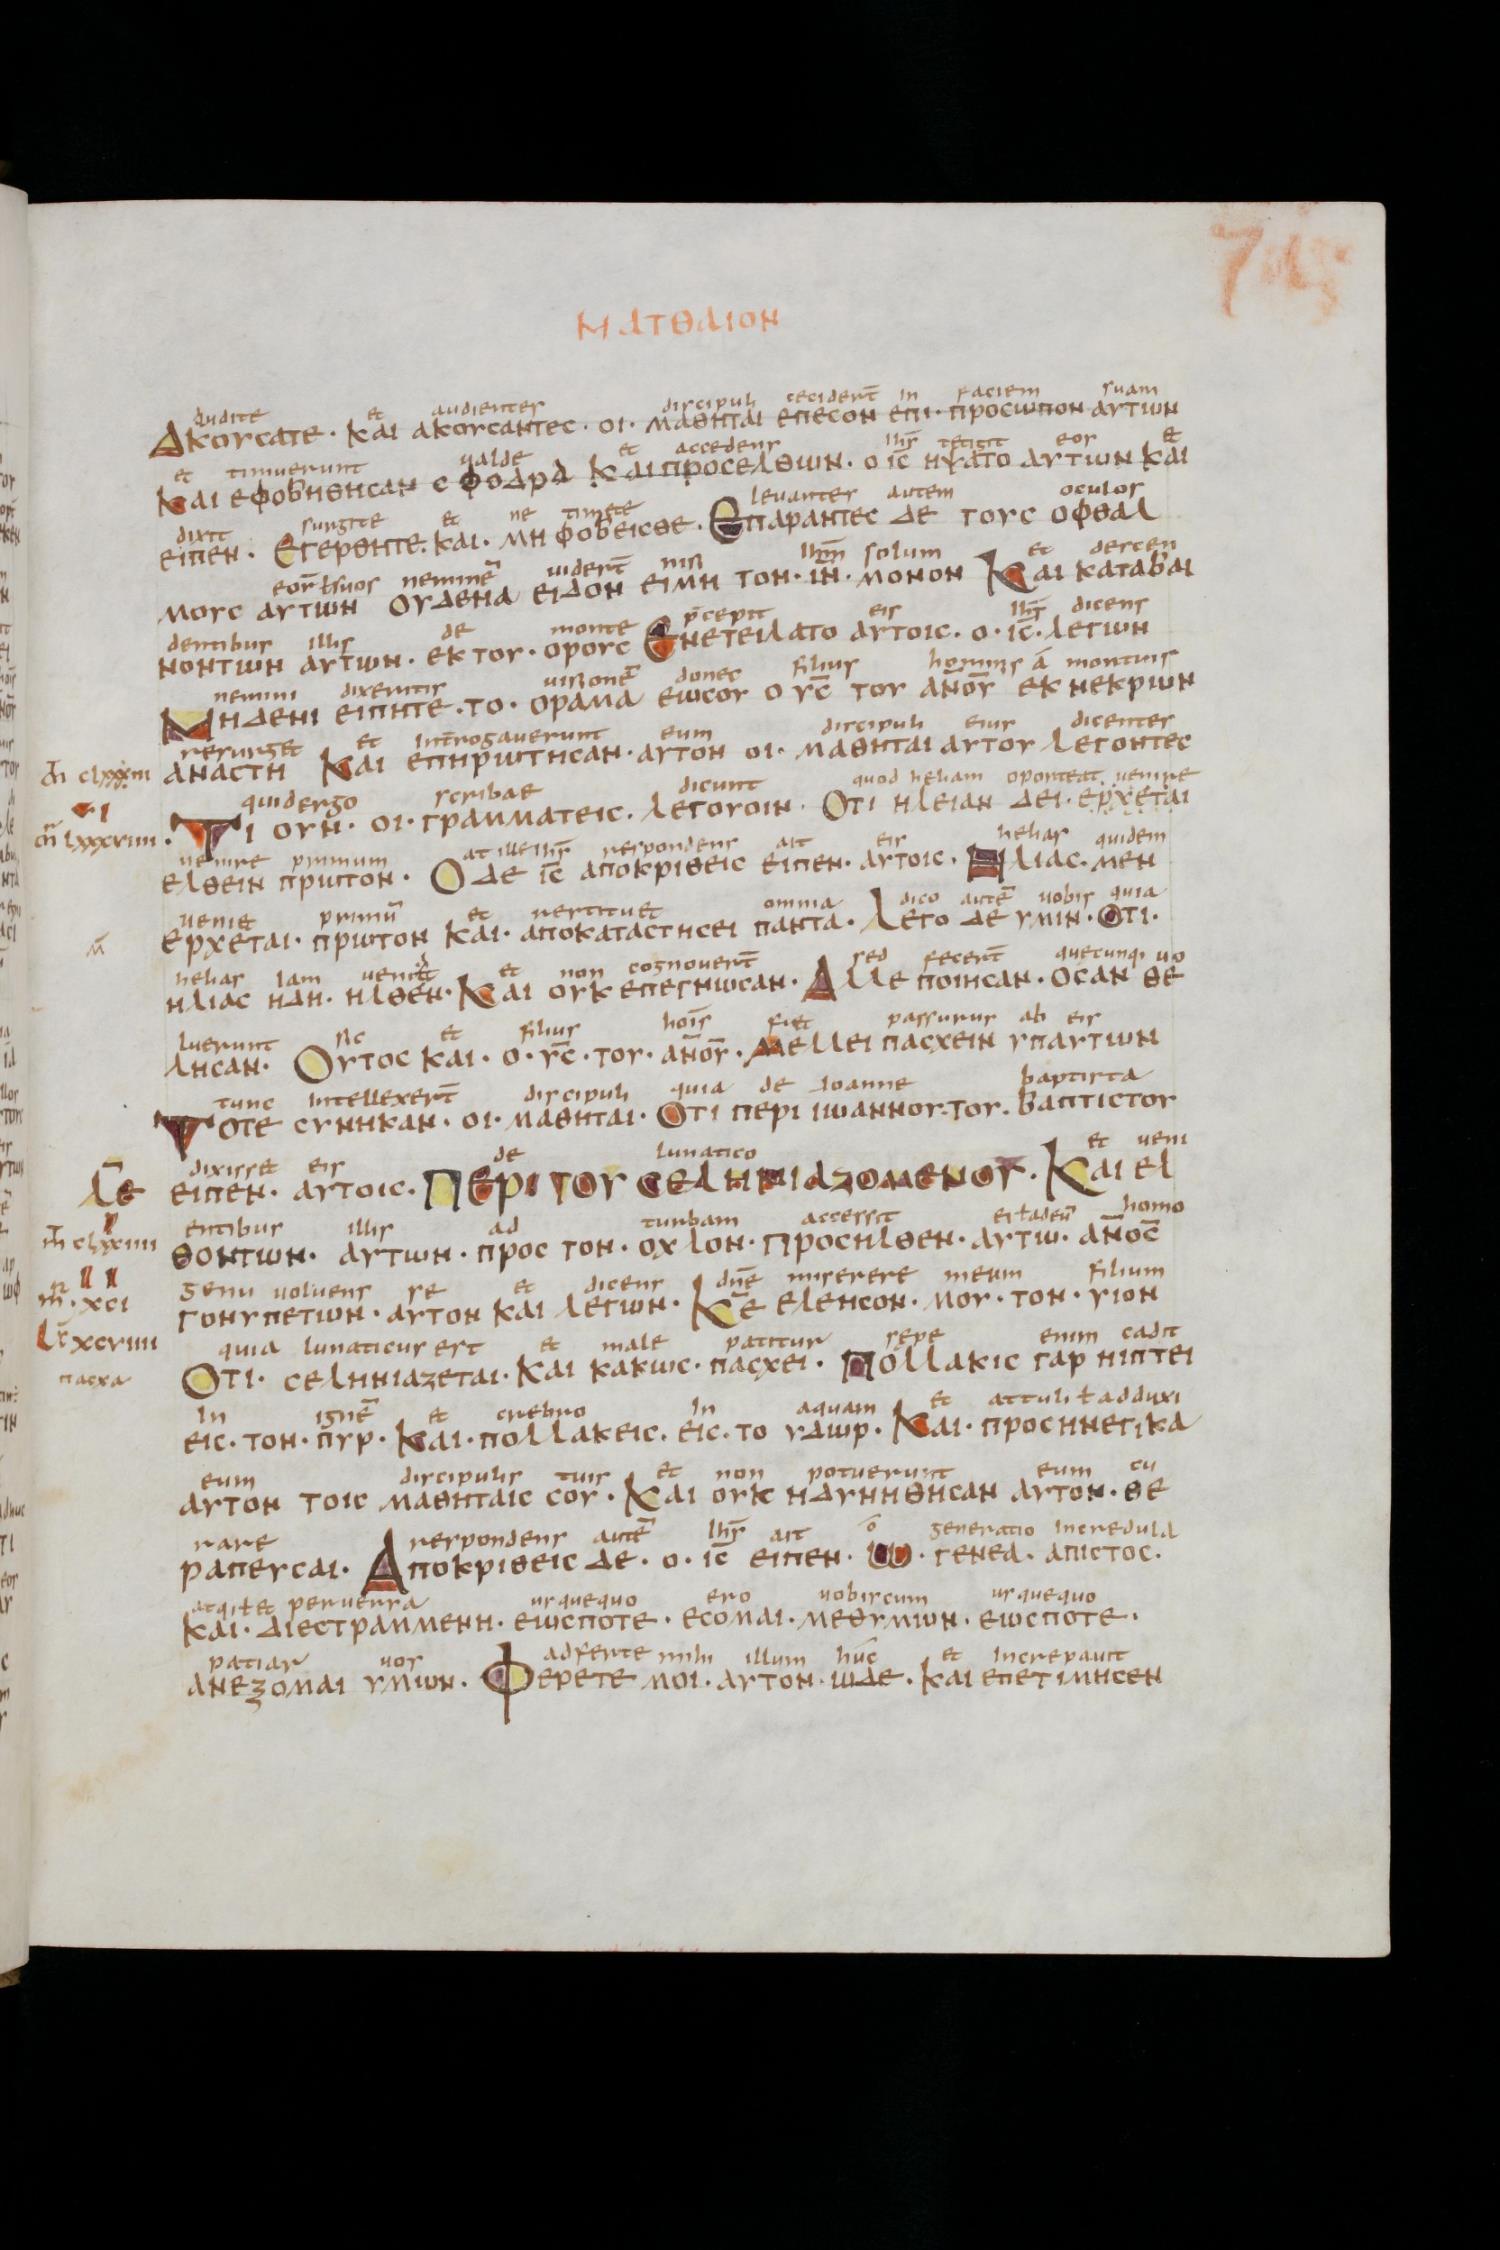 ΜΑΤΘΑΙΟΝ
audite et audientes discipuli cecider̄t in faciem suam
ΑΚΟΥCΑΤΕ · ΚΑΙ ΑΚΟΥCΑΝΤΕC · ΟΙ · ΜΑΘΗΤΑΙ ΕΠΕCΟΝ ΕΠΙ · ΠΡΟCΩΠΟΝ ΑΥΤΩΝ
et timuerunt valde et accedens ih̄s tetigit eos et
ΚΑΙ ΕΦΟΒΗΘΗCΑΝ CΦΟΔΡΑ ΚΑΙ ΠΡΟCΕΛΘΩΝ · Ο ΙC̄ ΗΨΑΤΟ ΑΥΤΩΝ ΚΑΙ
dixit surgite et ne timete levantes autem oculos
ΕΙΠΕΝ · ΕΓΕΡΘΗΤΕ · ΚΑΙ · ΜΗ ΦΟΒΕΙCΘΕ · ΕΠΑΡΑΝΤΕC ΔΕ ΤΟΥC ΟΦΘΑΛ
eor̄ ł suos neminē uider̄t nisi ih̄m solum et descen
ΜΟΥC ΑΥΤΩΝ ΟΥΔΕΝΑ ΕΙΔΟΝ ΕΙΜΗ ΤΟΝ · ΙΝ̄ · ΜΟΝΟΝ ΚΑΙ ΚΑΤΑΒΑΙ
dentibus illis de monte p̄cepit eis ih̄s dicens
ΝΟΝΤΩΝ ΑΥΤΩΝ · ΕΚ ΤΟΥ · ΟΡΟΥC ΕΝΕΤΕΙΛΑΤΟ ΑΥΤΟΙC · Ο · ΙC̄ · ΛΕΓΩΝ
nemini dixeritis uisionē donec filius hominis ā mortuis
ΜΗΔΕΝΙ ΕΙΠΗΤΕ · ΤΟ · ΟΡΑΜΑ ΕΩCΟΥ Ο ΥC̄ ΤΟΥ ΑΝ̄ΟῩ ΕΚ ΝΕΚΡΩΝ
resurget et interrogauerunt eum discipuli eius dicentes
ΑΝΑCΤΗ ΚΑΙ ΕΠΗΡΩΤΗCΑΝ · ΑΥΤΟΝ ΟΙ · ΜΑΘΗΤΑΙ ΑΥΤΟΥ ΛΕΓΟΝΤΕC
quid ergo scribae dicunt quod heliam oporteat uenire
ΤΙ ΟΥΝ · ΟΙ · ΓΡΑΜΜΑΤΕΙC · ΛΕΓΟΥCΙΝ · ΟΤΙ ΗΛΕΙΑΝ ΔΕΙ · ΕΡΧΕΤΑΙ
uenire primum at ille ih̄s respondens ait eis helias quidem
ΕΛΘΕΙΝ ΠΡΩΤΟΝ · ΟΔΕ ΙC̄ ΑΠΟΚΡΙΘΕΙC ΕΙΠΕΝ · ΑΥΤΟΙC · ΗΛΙΑC · ΜΕΝ
ueniet primū et restituet omnia dico autē uobis quia
ΕΡΧΕΤΑΙ · ΠΡΩΤΟΝ ΚΑΙ · ΑΠΟΚΑΤΑCΤΗCΕΙ ΠΑΝΤΑ · ΛΕΓΟ ΔΕ ΥΜΙΝ · ΟΤΙ ·
helias iam uenit et non cognouer̄t sed fecer̄t quecunq; uo
ΗΛΙΑC ΗΔΗ · ΗΛΘΕΝ · ΚΑΙ ΟΥΚ ΕΠΕΓΝΩCΑΝ · ΑΛΛΕ ΠΟΙΗCΑΝ · ΟCΑΝ ΘΕ
luerunt sic et filius hoīs fiet passurus ab eis
ΛΗCΑΝ · ΟΥΤΟC ΚΑΙ · Ο · ΥC̄ · ΤΟΥ · ΑΝ̄ΟῩ · ΜΕΛΛΕΙ ΠΑCΧΕΙΝ ΥΠΑΥΤΩΝ
tunc intellexer̄t discipuli quia de ioanne baptista
ΤΟΤΕ CΥΝΗΚΑΝ · ΟΙ · ΜΑΘΗΤΑΙ · ΟΤΙ ΠΕΡΙ ΙΩΑΝΝΟΥ · ΤΟΥ · ΒΑΠΤΙCΤΟΥ
dixisset eis de lunatico et ueni
ΕΙΠΕΝ · ΑΥΤΟΙC · ΠΕΡΙ ΤΟΥ CΕΛΗΝΙΑΖΟΜΕΝΟΥ · ΚΑΙ ΕΛ
entibus illis ad turbam accessit ei ł ad eū homo
ΘΟΝΤΩΝ · ΑΥΤΩΝ · ΠΡΟC ΤΟΝ · ΟΧΛΟΝ · ΠΡΟCΗΛΘΕΝ · ΑΥΤΩ · ΑΝ̄ΟC̄
genu uoluens se et dicens dn̄e miserere meum filium
ΓΟΝΥΠΕΤΩΝ · ΑΥΤΟΝ ΚΑΙ ΛΕΓΩΝ · ΚΕ̄ ΕΛΕΗCΟΝ · ΜΟΥ · ΤΟΝ · ΥΙΟΝ
quia lunaticus est et male patitur sepe enim cadit
ΟΤΙ · CΕΛΗΝΙΑΖΕΤΑΙ · ΚΑΙ ΚΑΚΩC · ΠΑCΧΕΙ · ΠΟΛΛΑΚΙC ΓΑΡ ΠΙΠΤΕΙ
in ignē et crebro in aquam et attuli ł adduxi
ΕΙC · ΤΟΝ · ΠΥΡ · ΚΑΙ · ΠΟΛΛΑΚΕΙC · ΕΙC · ΤΟ ΥΔΩΡ · ΚΑΙ · ΠΡΟCΗΝΕΓΙΚΑ
eum discipulis tuis et non potuerunt eum cu
ΑΥΤΟΝ ΤΟΙC ΜΑΘΗΤΑΙC CΟΥ · ΚΑΙ ΟΥΚ ΗΔΥΝΗΘΗCΑΝ ΑΥΤΟΝ · ΘΕ
rare respondens autē ih̄s ait ō generatio incredula
ΡΑΠΕΥCΑΙ · ΑΠΟΚΡΙΘΕΙC ΔΕ · Ο · ΙC̄ ΕΙΠΕΝ · Ω · ΓΕΝΕΑ · ΑΠΙCΤΟC ·
atq; ł et peruersa usquequo ero uobiscum usquequo
ΚΑΙ · ΔΙΕCΤΡΑΜΜΕΝΗ · ΕΩCΠΟΤΕ · ΕCΟΜΑΙ · ΜΕΘΥΜΩΝ · ΕΩCΠΟΤΕ ·
patiar uos adferte mihi illum hūc et increpauit
ΑΝΕΞΟΜΑΙ ΥΜΩΝ · ΦΕΡΕΤΕ ΜΟΙ · ΑΥΤΟΝ · ΩΔΕ · ΚΑΙ ΕΠΕΤΙΜΗCΕΝ
ΠΑCΧΑ